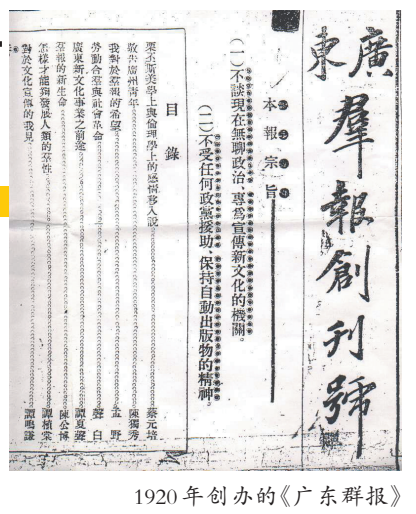 廣東
羣報創刊號
本報宗旨
(一)不談現在無聊政治、專爲宣傳新文化的機關。
(二)不受任何政黨援助、保持自動出版物的精神。
目錄
栗丕斯美學上與倫理學上的感情移入說 蔡元培
敬告廣州青年 陳獨秀
我對於羣報的希望 孟野
勞動合羣與社會革命 聲白
廣東新文化事業之前途 譚夏聲
羣報的新生命 陳公博
怎樣才能夠發展人類的羣性 譚植棠
對於文化宣傳的我見 譚鳴謙
1920年创办的《广东群报》